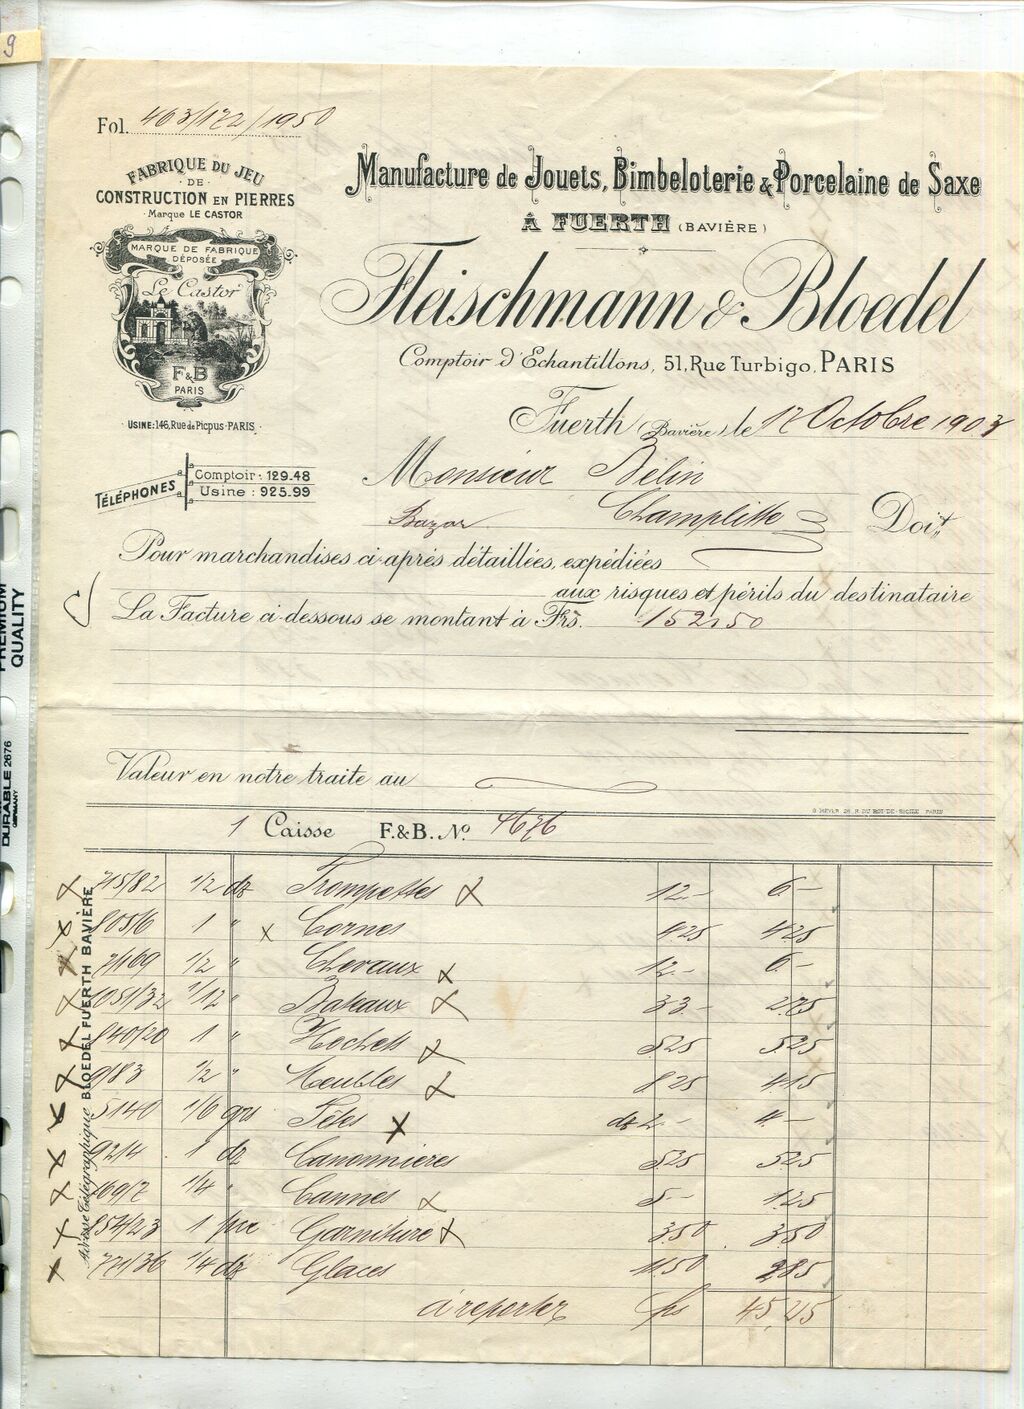 9
Fol. 463/172/1950
FABRIQUE DU JEU
DE
CONSTRUCTION EN PIERRES
Marque LE CASTOR
MARQUE DE FABRIQUE
DÉPOSÉE
Le Castor
F&B
PARIS
USINE: 146, Rue de Picpus - PARIS.
TÉLÉPHONES
Comptoir : 129.48
Usine : 925.99
Manufacture de Jouets, Bimbeloterie & Porcelaine de Saxe
À FUERTH (BAVIÈRE)
Fleischmann & Bloedel
Comptoir d'Echantillons, 51, Rue Turbigo, PARIS
Fuerth (Bavière) le 17 Octobre 1903
Monsieur Bélin
Bazar Champlitte Doit
Pour marchandises ci-après détaillées, expédiées
aux risques et périls du destinataire
La Facture ci-dessous se montant à Frs. 152,50
Valeur en notre traite au
1 Caisse F.&B. No. 4676
715/82 1/2 dz Trompettes 12.- 6-
805/6 1 " Cornes 4 25 4 25
7/169 1/2 " Chevaux 12.- 6-
1051/32 1/12 " Bateaux 33- 2 75
840/20 1 " Hochets 5 25 5 25
9/83 1/2 " Meubles 8 25 4 15
5140 1/6 grs Têtes dz 2- 4-
92/4 1 dz Canonnières 5 25 5 25
169/7 1/4 " Cannes 5- 1 25
854/23 1 pce Garniture 3 50 3 50
771/36 1/4 dz Glaces 11 50 2 85
à reporter frs 45,25
Adresse Télégraphique BLOEDEL FUERTH BAVIÈRE
PREMIUM
QUALITY
DURABLE 2676
GERMANY